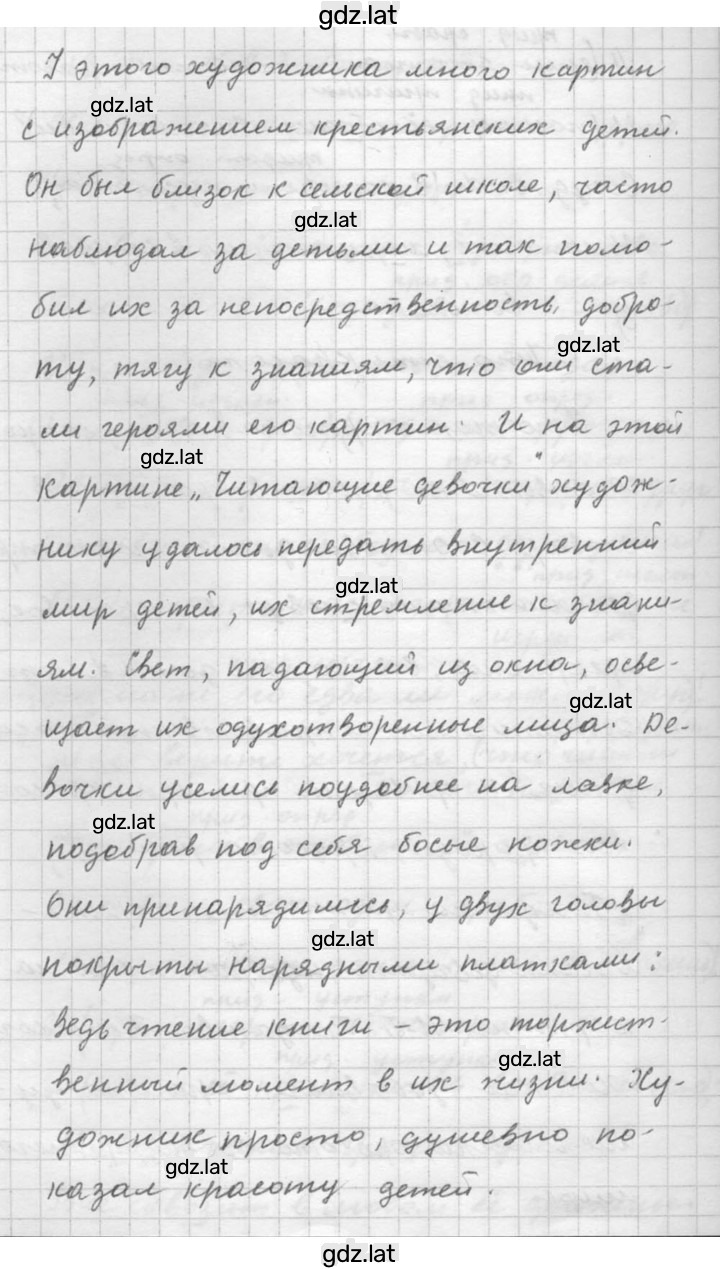 gdz.lat
У этого художника много картин
gdz.lat
с изображением крестьянских детей.
Он был близок к сельской школе, часто
gdz.lat
наблюдал за детьми и так полю-
бил их за непосредственность, добро-
gdz.lat
ту, тягу к знаниям, что они ста-
ли героями его картин. И на этой
gdz.lat
картине „Читающие девочки" худож-
нику удалось передать внутренний
gdz.lat
мир детей, их стремление к знани-
ям. Свет, падающий из окна, осве-
gdz.lat
щает их одухотворенные лица. Де-
вочки уселись поудобнее на лавке,
gdz.lat
подобрав под себя босые ножки.
Они принарядились, у двух головы
gdz.lat
покрыты нарядными платками:
ведь чтение книги – это торжест-
gdz.lat
венный момент в их жизни. Ху-
дожник просто, душевно по-
gdz.lat
казал красоту детей.
gdz.lat